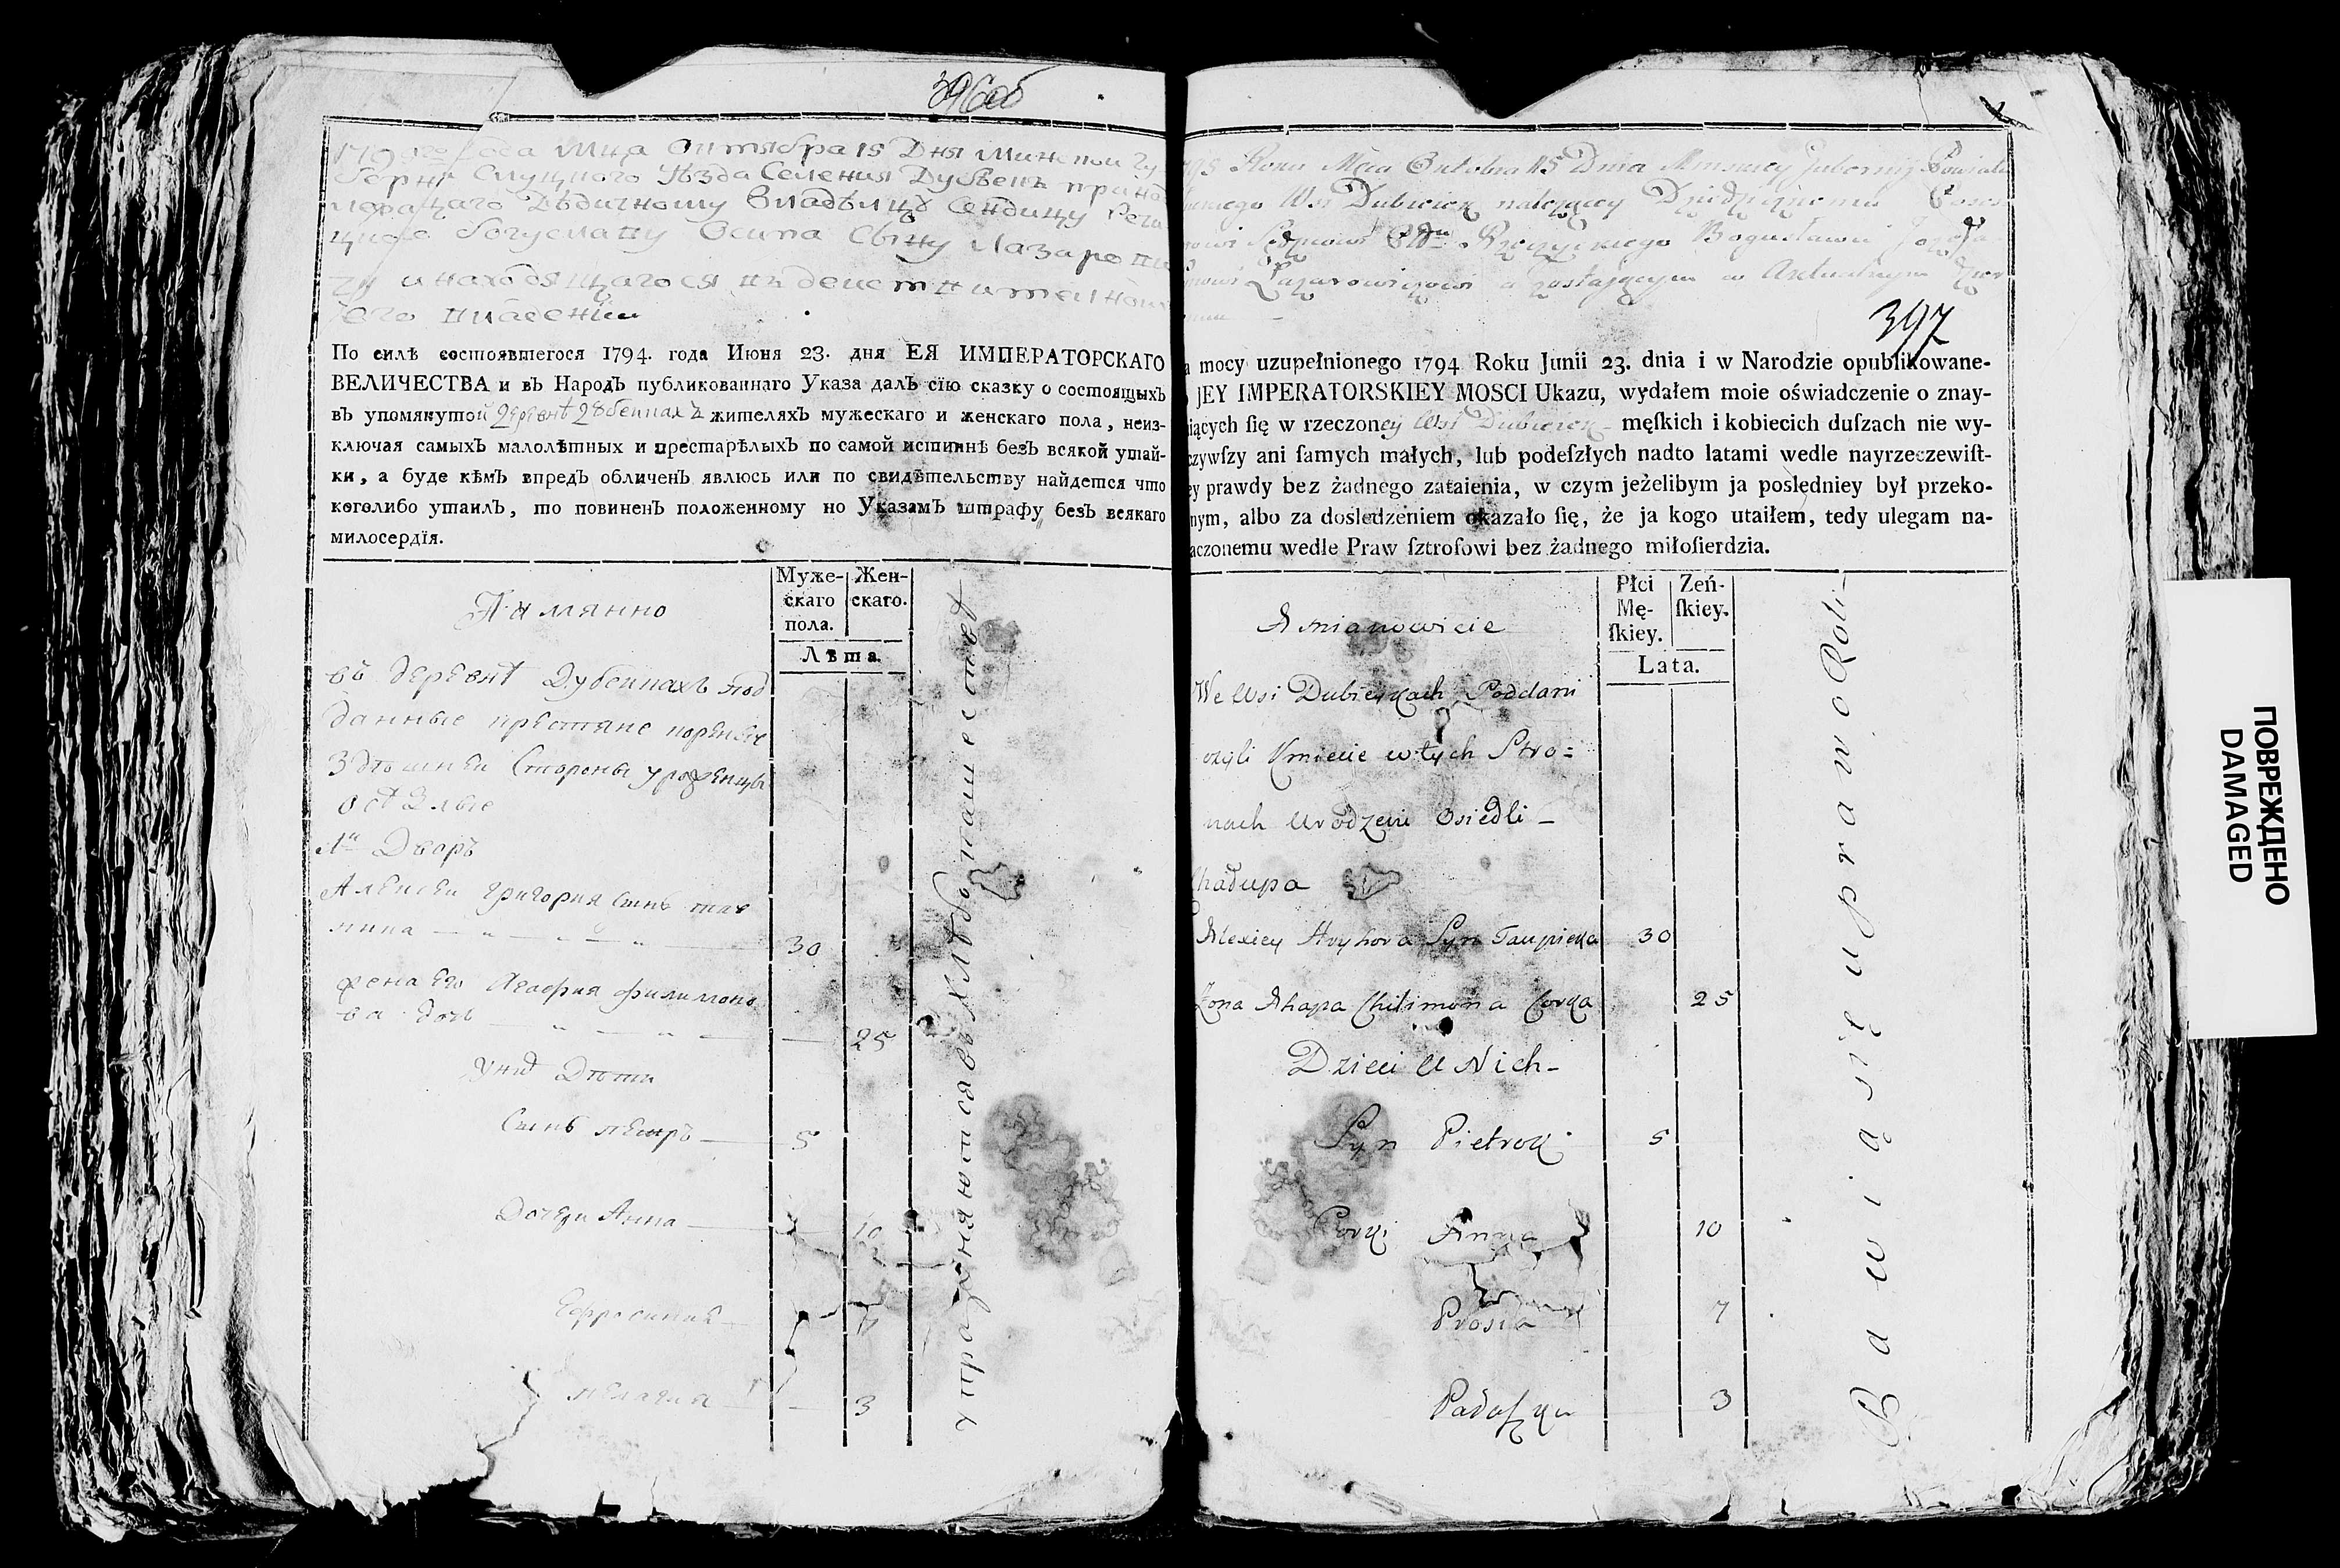 396об
Года Мца Октября 15 Дня Минской Гу
берни Слуцкого Уѣзда Селения Дубѣекъ
Дѣдичному Владѣлцу
Богуславу Осипа Сыну Лазарови
чу и находящагося въ действителномъ
его владении
По силѣ состоявшегося 1794. года Июня 23. дня ЕЯ ИМПЕРАТОРСКАГО
ВЕЛИЧЕСТВА и въ Народъ публикованнаго Указа далъ сію сказку о состоящыхъ
въ упомянутой деревнѣ Дубейкахъ жителяхъ мужескаго и женскаго пола, неиз-
ключая самыхъ малолѣтных и престарѣлыхъ по самой истиннѣ безъ всякой утай-
ки, а буде кѣмъ впредъ обличенъ явлюсь или по свидѣтельству найдется что
коголибо утаилъ, то повиненъ положенному но Указамъ штрафу безъ всякаго
милосердїя.
Имянно
Муже-
скаго
пола.
Жен-
скаго.
Лѣта.
въ деревнѣ Дубейкахъ под
данные крестяне
здѣшней стороны уроженцы
оселые
1й Дворъ
Алексей Григория Сынъ
30
жена Его Агафия Филимоно
ва дочь 25
у нихъ Дѣти
Сынъ Петръ 5
Дочери Анна 10
Ефросиния 7
Пелагия 3
упражняются въ Хлебопашестве
Roku Mca Oktobra 15 Dnia Minskiey Gubernij Powiatu
Wsi Dubieiek należącey Dziedzicznemu
Rzeczyckiego Bogusławu Jozefa
Łazarowiczowi a zostającym w Aktualnym
397
a mocy uzupełnionego 1794 Roku Junii 23. dnia i w Narodzie opublikowane-
JEY IMPERATORSKIEY MOSCI Ukazu, wydałem moie oświadczenie o znay-
iących ſię w rzeczoney Wsi Dubieiek męſkich i kobiecich duſzach nie wy-
czywſzy ani ſamych małych, lub podeſzłych nadto latami wedle nayrzeczewiſt-
ey prawdy bez żadnego zataienia, w czym jeżelibym ja poslędniey był przeko-
nym, albo za dosledzeniem okazało ſię, że ja kogo utaiłem, tedy ulegam na-
aczonemu wedle Praw ſztroſowi bez żadnego miłoſierdzia.
A mianowicie
Płci
Mę-
ſkiey.
Zeń-
ſkiey.
Lata.
We Wsi Dubieykach Poddani
czyli Kmiecie w tych Stro=
nach Urodzeni Osiedli –
Chałupa
Alexiey Hryhora Syn 30
Żona Ahapa Chilimona Corka 25
Dzieci U Nich –
Syn Pietrok 5
Corki Anna 10
Prosia 7
Padoszka 3
Bawią się uprawą Roli
ПОВРЕЖДЕНО
DAMAGED